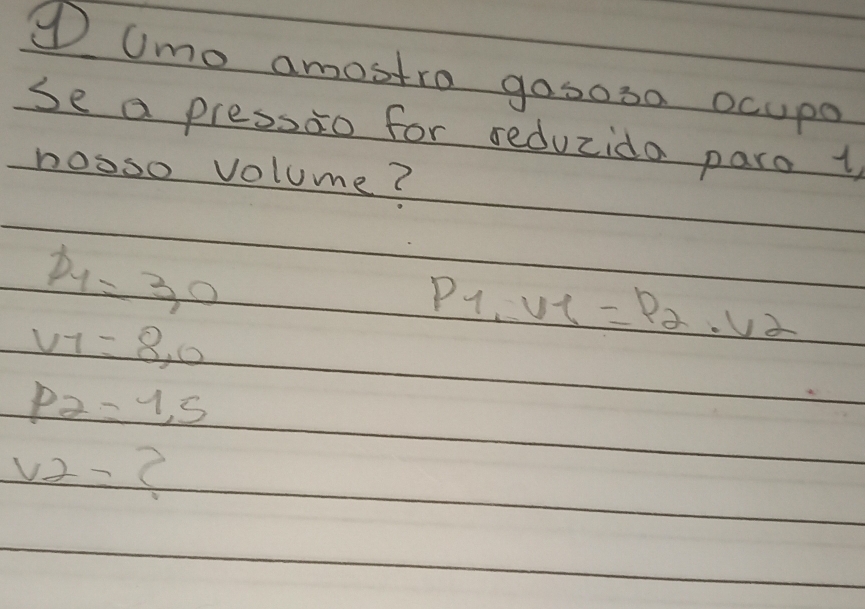 1) Uma amostra gasosa ocupa
Se a pressão for reduzida para 1,
nosso volume?
P1 = 3,0
P1 . V1 = P2 . V2
V1 = 8,0
P2 = 1,5
V2 = ?